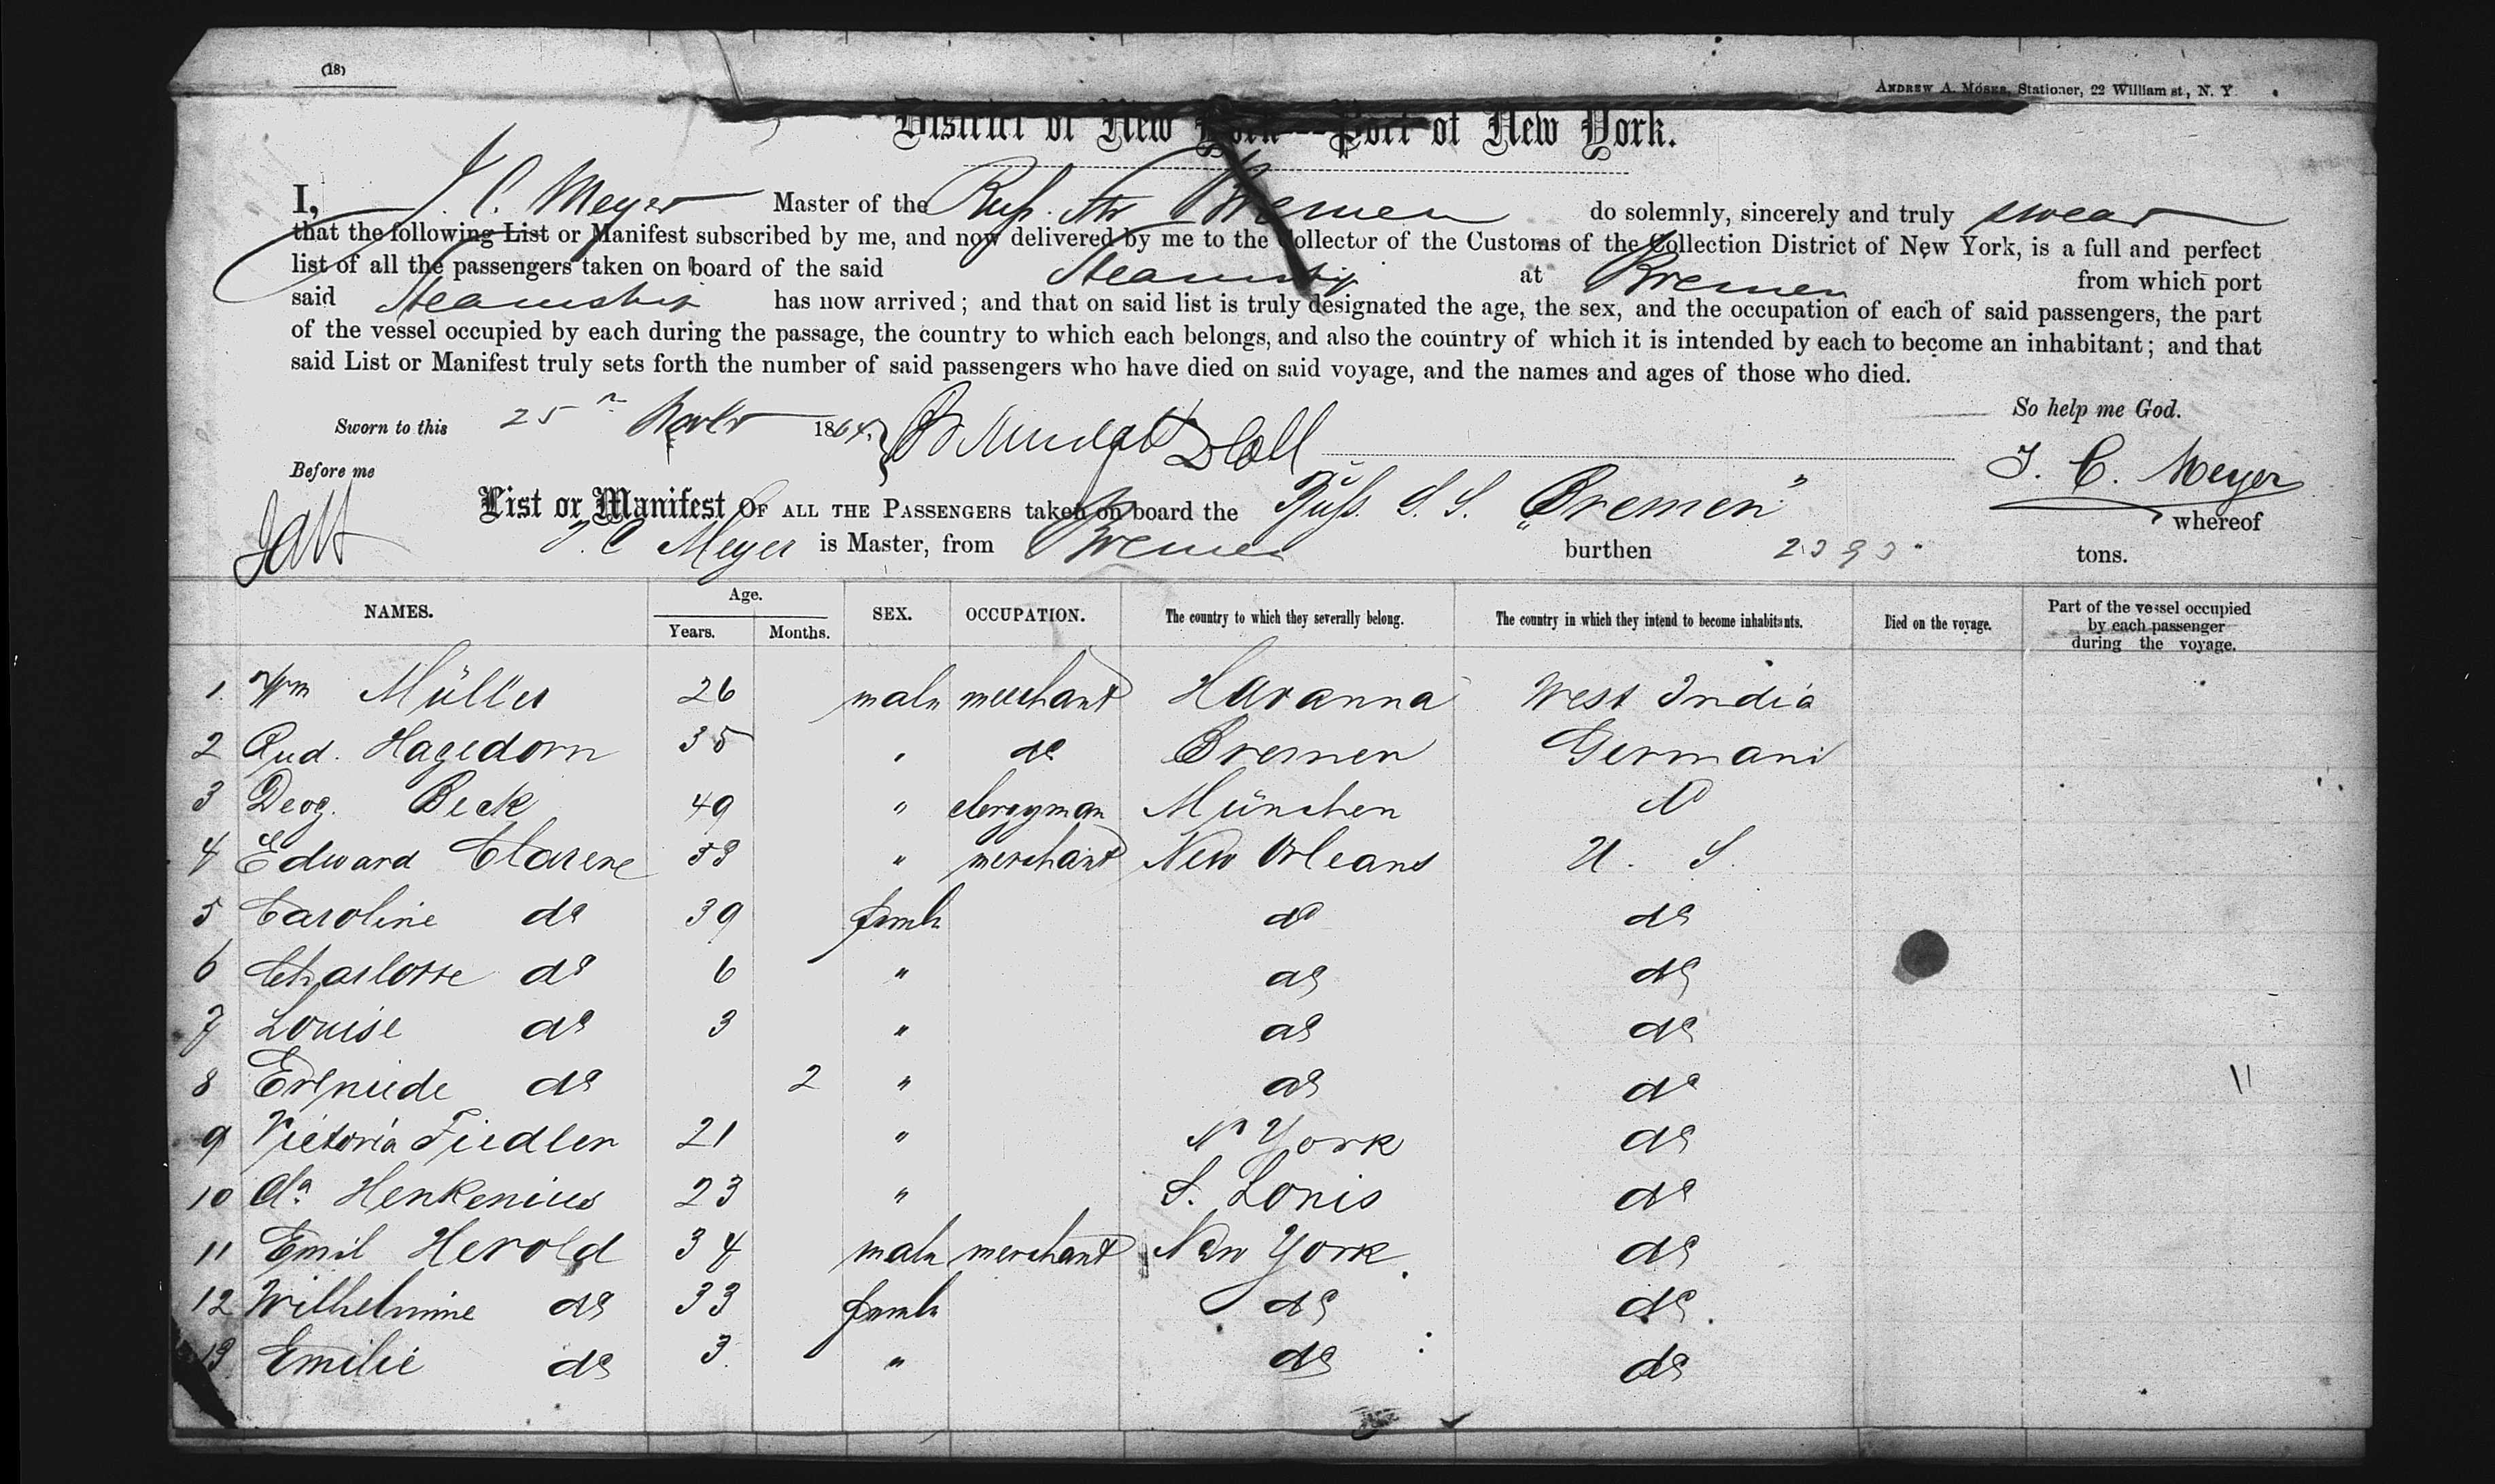 (18)
ANDREW A. MOSES, Stationer, 22 William st, N. Y
District of New York--Port of New York.
I, J. C. Meyer Master of the Russ. Str Bremen do solemnly, sincerely and truly swear
that the following List or Manifest subscribed by me, and now delivered by me to the Collector of the Customs of the Collection District of New York, is a full and perfect
list of all the passengers taken on board of the said Steamship at Bremen from which port
said Steamship has now arrived; and that on said list is truly designated the age, the sex, and the occupation of each of said passengers, the part
of the vessel occupied by each during the passage, the country to which each belongs, and also the country of which it is intended by each to become an inhabitant; and that
said List or Manifest truly sets forth the number of said passengers who have died on said voyage, and the names and ages of those who died.
So help me God.
Sworn to this 25 1864
Before me
J. C. Meyer
List or Manifest OF ALL THE PASSENGERS taken on board the Russ. S. S. "Bremen" whereof
J. C Meyer is Master, from Bremen burthen 2393 tons.
NAMES. Age. Years. Months. SEX. OCCUPATION. The country to which they severally belong. The country in which they intend to become inhabitants. Died on the voyage. Part of the vessel occupied by each passenger during the voyage.
1. Wm Müller 26 male merchant Havanna West India
2 Rud. Hagedorn 35 " do Bremen Germani
3 Beck 49 " clergyman München do
4 Edward 53 " merchant New Orleans U. S.
5 Caroline do 39 female do do
6 Charlotte do 6 " do do
7 Louise do 3 " do do
8 do 2 " do do
9 Victoria Fiedler 21 " N York do
10 Henkenius 23 " S. Louis do
11 Emil Herold 34 male merchant New York. do
12 Wilhelmine do 33 female do do.
13 Emilie do 3. " do do